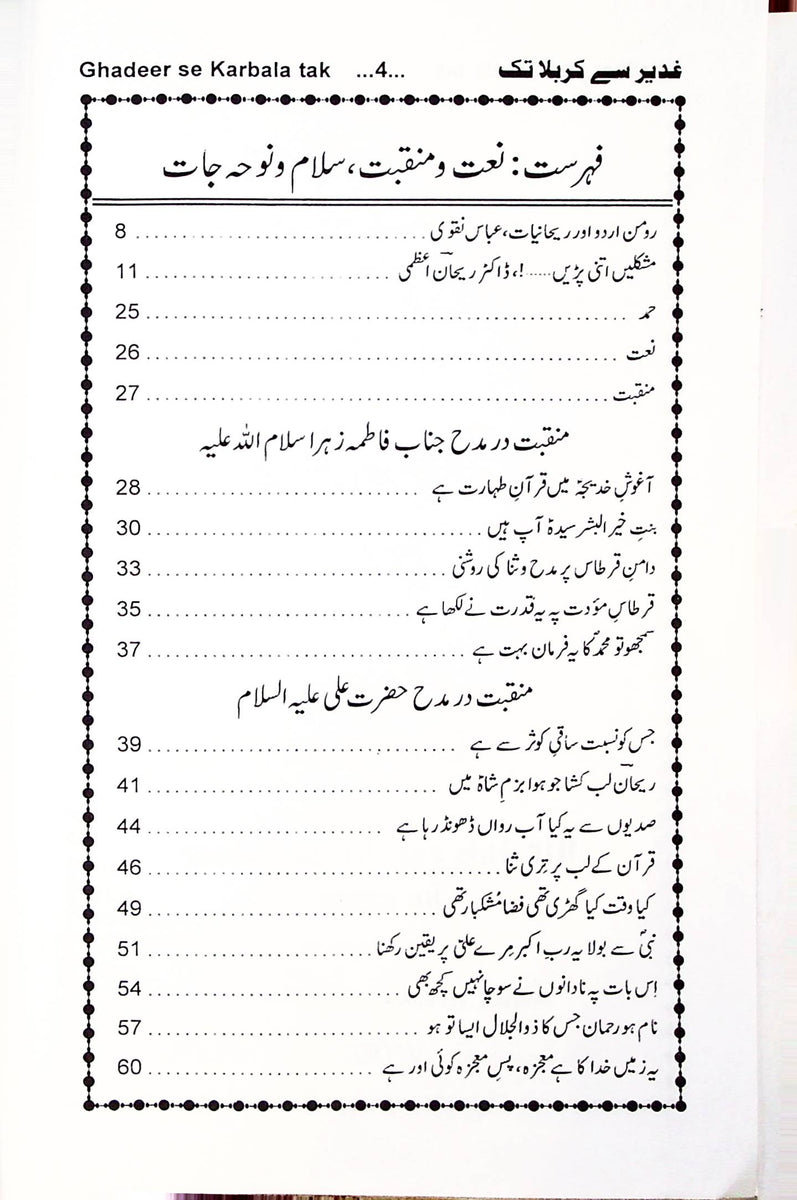 Ghadeer se Karbala tak ...4... غدیر سے کربلا تک
فہرست: نعت و منقبت، سلام و نوحہ جات
رومن اردو اور ریحانیات، عباس نقوی ............................ 8
مشکلیں اتنی پڑیں.....!، ڈاکٹر ریحانؔ اعظمی ........................ 11
حمد ................................................ 25
نعت ................................................ 26
منقبت ............................................... 27
منقبت در مدح جناب فاطمہ زہرا سلام اللہ علیہ
آغوشِ خدیجہؑ میں قرآنِ طہارت ہے ........................... 28
بنتِ خیر البشر سیدہؑ آپ ہیں ................................ 30
دامنِ قرطاس پر مدح و ثنا کی روشنی ............................. 33
قرطاسِ مؤدت پہ یہ قدرت نے لکھا ہے ......................... 35
سمجھو تو محمدؐ کا یہ فرمان بہت ہے .............................. 37
منقبت در مدح حضرت علی علیہ السلام
جس کو نسبت ساقیِ کوثر سے ہے .............................. 39
ریحانؔ لب کشا جو ہوا بزمِ شاہؑ میں ............................ 41
صدیوں سے یہ کیا آب رواں ڈھونڈ رہا ہے ....................... 44
قرآن کے لب پر تِری ثنا ................................... 46
کیا وقت کیا گھڑی تھی فضا مُشکبار تھی ............................ 49
نبیؐ سے بولا یہ ربِ اکبر مِرے علیؑ پر یقین رکھنا ...................... 51
اِس بات پہ نادانوں نے سوچا نہیں کچھ بھی ......................... 54
نام ہو رحمان جس کا ذوالجلال ایسا تو ہو .......................... 57
یہ زمیں خدا کا ہے معجزہ، پسِ معجزہ کوئی اور ہے ....................... 60